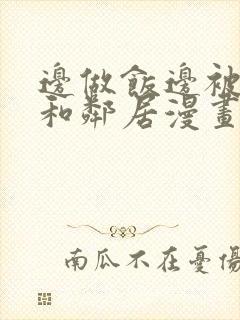 邊做飯邊被
和鄰居漫畫
南瓜不在憂傷